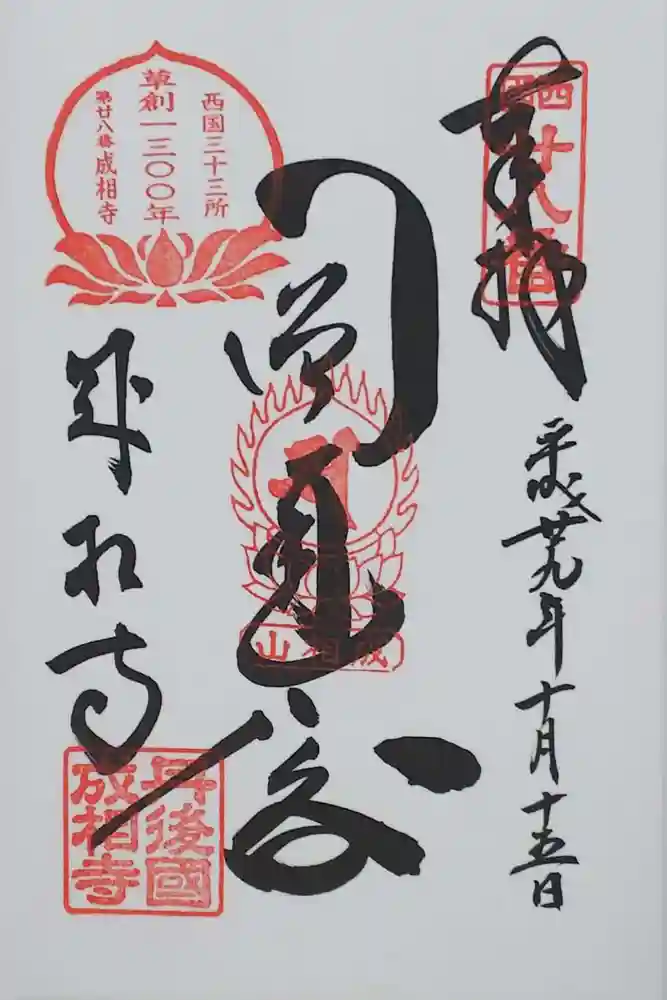 奉拝
西国
廿八番
平成廿九年十月十五日
成相山
西国三十三所
草創一三〇〇年
第廿八番 成相寺
成相寺
丹後國
成相寺